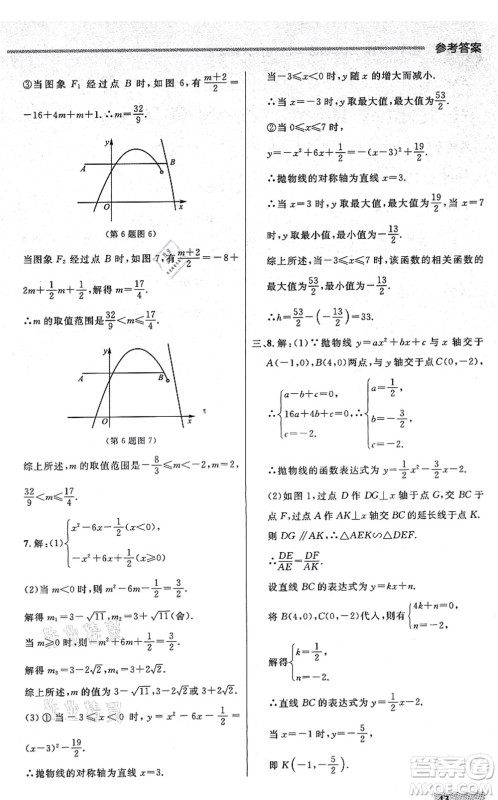 参考答案
③当图象 F₁ 经过点 B 时,如图 6,有 (m+2)/2
=-16+4m+m+1.∴m=32/9.
y
A
B
O
x
(第 6 题图 6)
当图象 F₂ 经过点 B 时,如图 7,有 (m+2)/2=-8+
2m+1/2m-1/2,解得 m=17/4.
∴m 的取值范围是 32/9<m≤17/4.
y
A
B
O
x
(第 6 题图 7)
综上所述,m 的取值范围为 -8/3≤m<-2,
32/9<m≤17/4.
7.解:(1){x²-6x-1/2(x<0),
-x²+6x+1/2(x≥0).
(2)当 m<0 时,m²-6m-1/2=3/2.
解得 m₁=3-√11,m₂=3+√11(舍).
当 m≥0 时,-m²+6m+1/2=3/2.
解得 m₃=3+2√2,m₄=3-2√2.
综上所述,m 的值为 3-√11,3±2√2.
(3)①当 -3≤x<0 时,y=x²-6x-1/2=
(x-3)²-19/2.
∴抛物线的对称轴为直线 x=3.
当-3≤x<0 时,y 随 x 的增大而减小.
∴当 x=-3 时,y 取最大值,最大值为 53/2.
②当 0≤x≤7 时,
y=-x²+6x+1/2=-(x-3)²+19/2.
∴抛物线的对称轴为直线 x=3.
∴当 x=3 时,y 取最大值,最大值为 19/2.
当 x=7 时,y 取最小值,最小值为-13/2.
综上所述,当-3≤x≤7 时,该函数的相关函数的
最大值为 53/2,最小值为-13/2.
∴h=53/2-(-13/2)=33.
三、8.解:(1)∵抛物线 y=ax²+bx+c 与 x 轴交于
A(-1,0),B(4,0)两点,与 y 轴交于点 C(0,-2),
∴{a-b+c=0,
16a+4b+c=0,
c=-2.
∴{a=1/2,
b=-3/2,
c=-2.
∴抛物线的函数表达式为 y=1/2x²-3/2x-2.
(2)如图,过点 D 作 DG⊥x 轴于点 G,交 BC 于点
F,过点 A 作 AK⊥x 轴交 BC 的延长线于点 K.
则 DG∥AK.∴△AKE∽△DFE.
∴DE/AE=DF/AK.
设直线 BC 的表达式为 y=kx+n.
将 B(4,0),C(0,-2)代入,有{4k+n=0,
n=-2.
解得{k=1/2,
n=-2.
∴直线 BC 的表达式为 y=1/2x-2.
当 x=-1 时,y=-1/2-2=-5/2.
即 K(-1,-5/2).